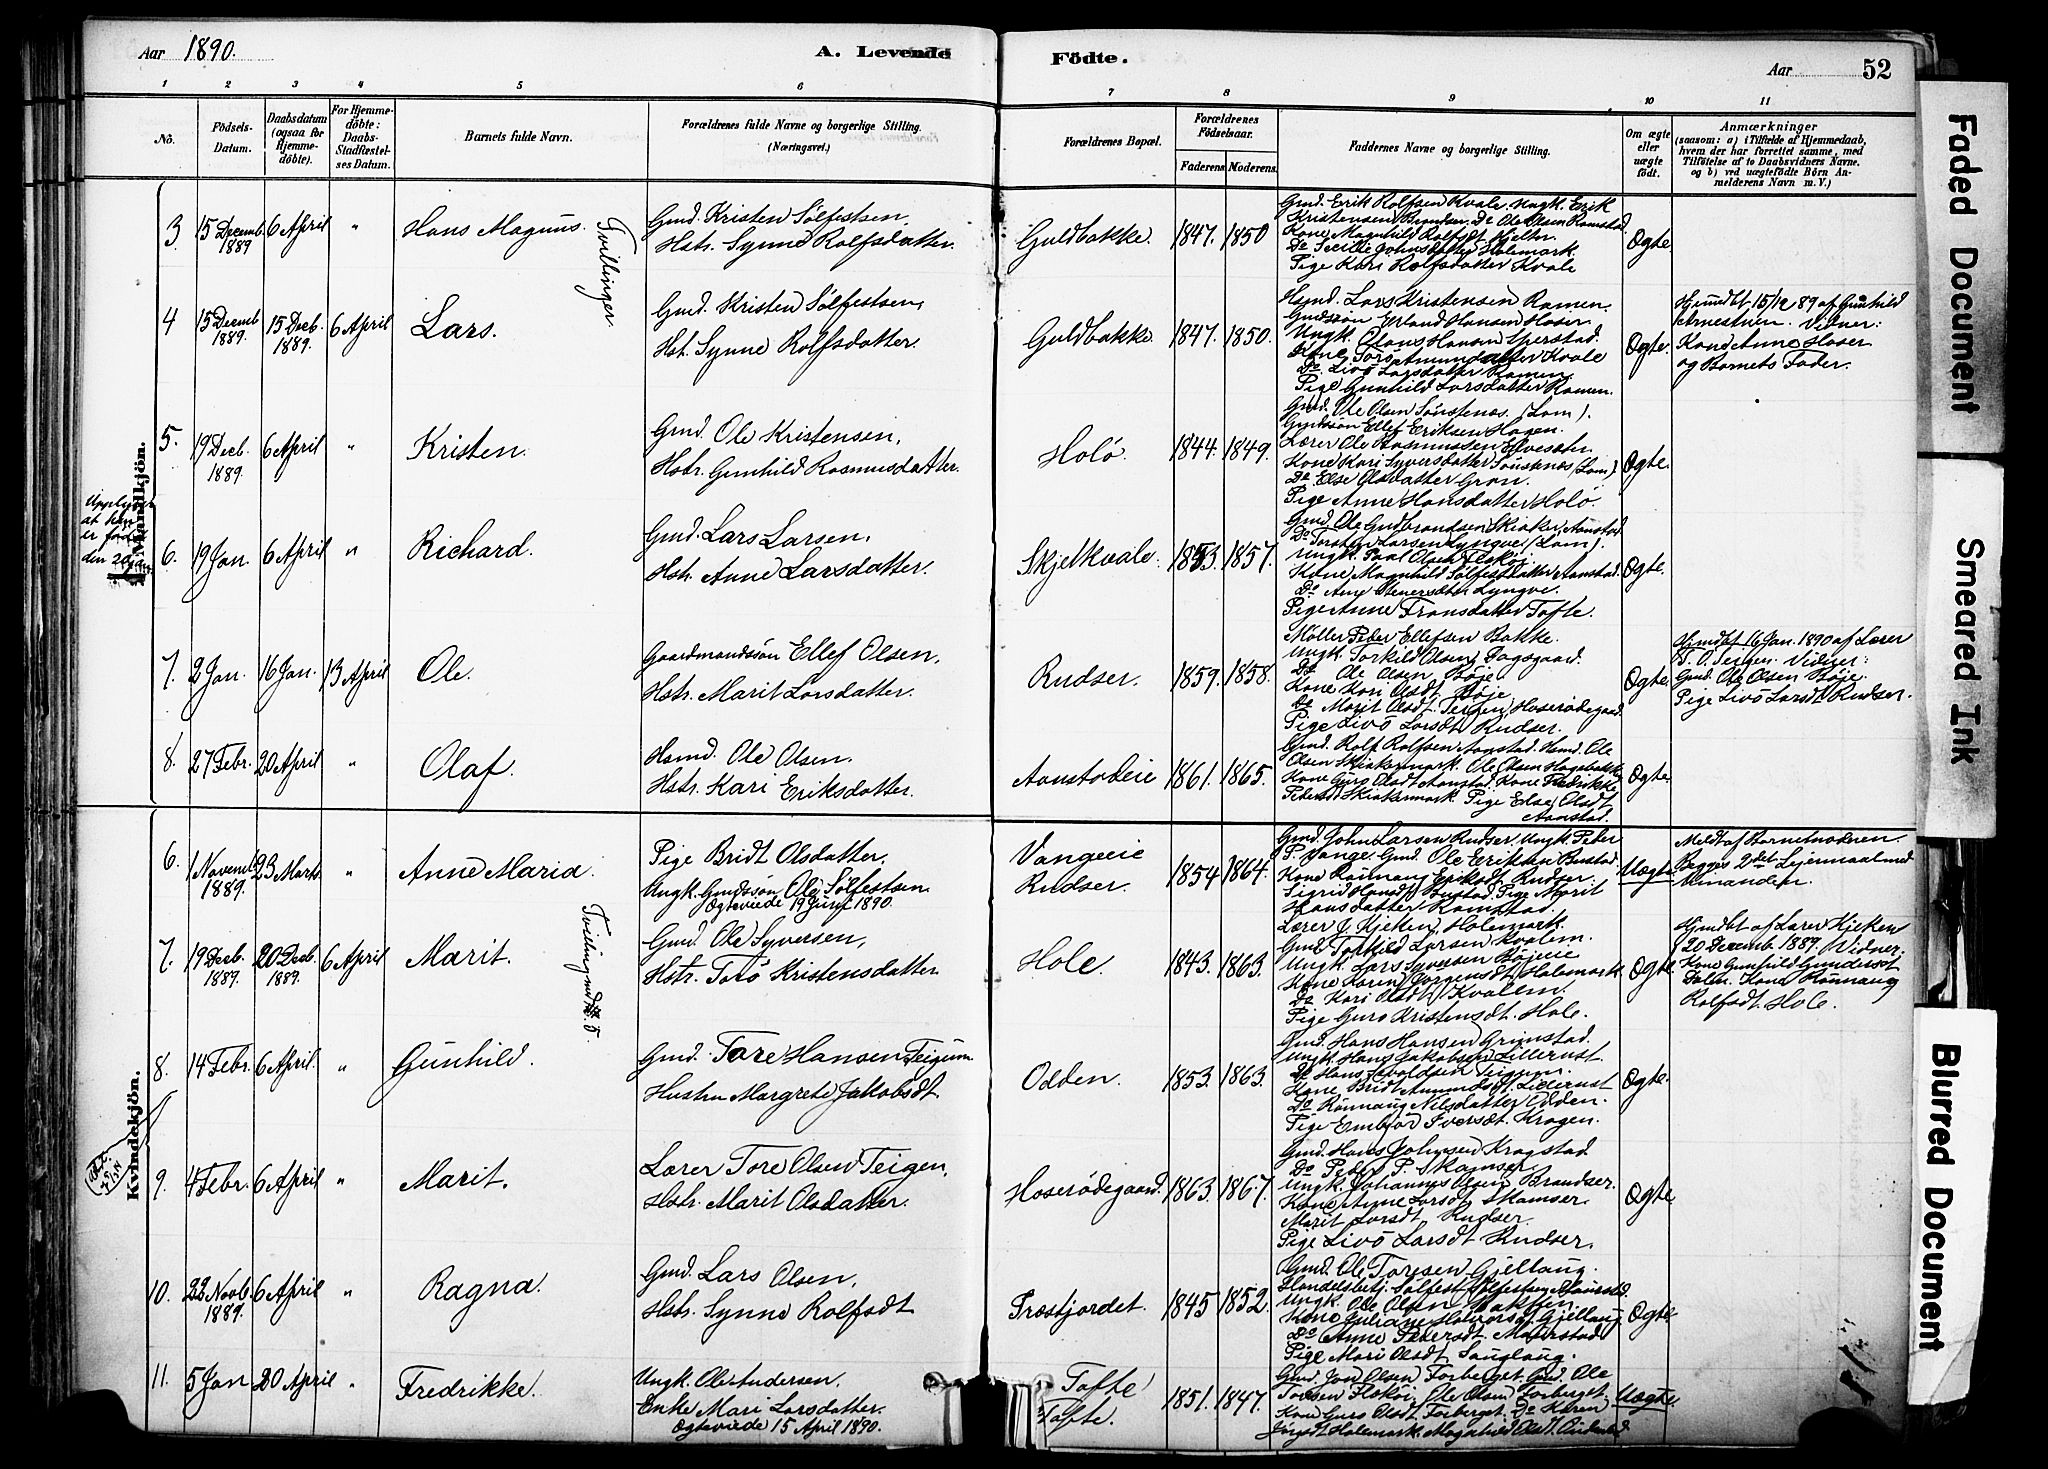 Aar 1890.
A. Levende
Födte.
Aar
52
1 2 3 4 5 6 7 8 9 10 11
No.
Födsels-Datum.
Daabsdatum (ogsaa for Hjemme-döbte).
For Hjemme-döbte: Daabs-Stadfæstel-ses Datum.
Barnets fulde Navn.
Forældrenes fulde Navne og borgerlige Stilling. (Næringsvei.)
Forældrenes Bopæl.
Forældrenes Födselsaar.
Faderens Moderens
Faddernes Navne og borgerlige Stilling.
Om ægte eller uægte födt.
Anmærkninger
(saasom: a) i Tilfælde af Hjemmedaab,
hvem der har forrettet samme, med
Tilföielse af to Daabsvidners Navne,
og b) ved uægtefödte Börn An-
melderens Navn m. V.)
Mandkjön.
Tvillinger
3. 15 Decemb 1889 6 April " Hans Magnus.
Gmd. Kristen Sølfestsen,
Hstr. Synne Rolfsdatter.
Guldbakke. 1847. 1850
Gmd. Erik Rolfsen Kvale. Ungk. Erik
Kristensen Brandser. Do Ole Olsen Ramstad.
Kone Magnhild Rolfsdt. Hjelter.
Do Secilie Johnsdatter Holemark.
Pige Kari Rolfsdatter Kvale
Ægte.
4 15 Decemb 1889. 15 Decb. 1889. 6 April Lars.
Gmd. Kristen Sølfestsen,
Hst. Synne Rolfsdatter.
Guldbakke 1847. 1850.
Hsmd. Lars Kristensen Ramen.
Gmdssøn Erland Hansen Hoser.
Ungk. Hans Hansen
Kone Tora Amundsdatter Kvale
Do. Livö Larsdatter Ramen.
Pige Gunhild Larsdatter Ramen.
Ægte.
Hjmdbt 15/12 89 af Gunhild
Arnestuen. Vidner:
Kone Anne Hoser
og Barnets Fader.
5. 19 Decb. 1889. 6 April " Kristen.
Gmd. Ole Kristensen,
Hstr. Gunhild Rasmusdatter.
Holö 1844. 1849.
Gmd. Ole Olsen Sønstenæs. (Lom).
Gmdssøn Ellef Eriksen Hagen.
Lærer Ole Rasmussen
Kone Kari Syversdatter Sønstenæs (Lom)
Do. Else Olsdatter Grøn.
Pige Anne Hansdatter Holö.
Ægte.
Upplyses
at han
er född
den 20
6. 19 Jan. 6 April " Richard.
Gmd. Lars Larsen,
Hstr. Anne Larsdatter.
Skjelkvale. 1853. 1857.
Gmd. Ole Gudbrandsen Skiaker, Aanstad.
Do Torsten Larsen Lyngve (Lom).
Ungk. Paal Olsen Flekøi
Kone Magnhild Sølfestdatter Aanstad.
Do Ane Stenersdtr. Lyngve.
Pige Anne Fransdatter Tofte.
Ægte.
7. 2 Jan. 16 Jan. 13 April Ole.
Gaardmandssön Ellef Olsen,
Hstr. Marit Larsdatter.
Rudser. 1859. 1858.
Møller Peder Ellefsen Bakke.
Ungk. Torkild Olsen Dagsgaard.
Do Ole Olsen Böje
Kone Kari Olsdt. Böje
Do Marit Olsdt. Teigen, Hoserødegaard.
Pige Livö Larsdt. Rudser.
Ægte.
Hjmdbt. 16 Jan. 1890 af Lærer
T. O. Teigen. Vidner:
Gmd. Ole Olsen Böje.
Pige Livö Larsdt Rudser.
8. 27 Febr. 20 April " Olaf.
Hsmd. Ole Olsen.
Hstr. Kari Eriksdatter.
Aanstadeie 1861. 1865.
Gmd. Rolf Rolfsen Aanstad. Hsmd. Ole
Olsen Skiakermark. Ole Olsen Hagebakke
Kone Guro Olsdt Aanstad. Kone Fredrikke
Pedersdt Skiakermark. Pige Else Olsdt
Aanstad.
Ægte.
Kvindekjön.
6. 1 Novemb 1889. 23 Marts " Anne Maria.
Pige Bridt Olsdatter.
Ungk. Gmdssøn Ole Sølfestsen
Ægteviede 19 Juni 1890.
Vangeeie
Rudser. 1854 1864.
Gmd. John Larsen Rudser. Ungk. Peder
P. Vange. Gmd. Ole Eriksen Bustad.
Kone Rönnaug Eriksdt. Rudser.
Sigrid Hansdt Bustad. Pige Marit
Hansdatter Ramstad.
Uægte.
Meldt af Barnemoderen.
Begges 2det Lejermaal med
Umanden.
Tvilling
7. 19 Decb. 1889. 20 Decb. 1889. 6 April Marit.
Gmd. Ole Syversen,
Hstr. Torö Kristensdatter
Hole. 1843. 1863.
Lærer J. Kjeken, Holemark.
Gmd. Torkild Larsen Kvalem.
Ungk. Lars Syversen Böjeeie
Kone Karen Jörgensdt. Holemark
Do Kari Olsdt Kvalem.
Pige Guro Kristensdt. Hole.
Ægte.
Hjmdbt af Lærer Kjeken
20 Decemb. 1889. Vidner:
Kone Gunhild Gundersdt
Dalen. Kone Rönnaug
Rolfsdt Hole.
8. 14 Febr. 6 April. " Gunhild.
Gmd. Tore Hansen Teigum
Hustru Margrete Jakobsdt.
Odden. 1853. 1863.
Gmd. Hans Hansen Grimstad.
Ungk. Hans Jakobsen Lillerust
Do Hans Teigum.
Kone Bridt Amundsdt. Lillerust
Do Rönnaug Nilsdatter Odden.
Pige Embjør Sversdt. Kragen.
Ægte.
9. 4 Febr. 6 April " Marit.
Lærer Tore Olsen Teigen,
Hstr. Marit Olsdatter.
Hoserødegaard. 1863. 1867.
Gmd. Hans Johnsen Kragstad
Do Peder P. Skamser
Ungk. Johannes Olsen Brandser.
Kone Anne Larsdt Skamser.
Marit Larsdt. Rudser.
Pige Livö Larsdt Rudser.
Ægte
10. 22 Novb. 1889. 6 April " Ragna.
Gmd. Lars Olsen,
Hstr. Synne Rolfsdt
Præstjordet. 1845 1852.
Gmd. Ole Toresen Gjellaug.
Handelsbetj. Sølfest Sølfestsen Aanstad.
Ungk. Ole Olsen Bakken.
Kone Juliane Halvorsdt Gjellaug
Do Anne Pedersdt.
Pige Mari Olsdt.
Ægte
11. 5 Jan 20 April " Fredrikke.
Ungk. Ole Andersen.
Enke Mari Larsdatter.
Ægteviede 15 April 1890.
Tofte
Tofte. 1851. 1847.
Gmd. Jon Olsen Forberget. Gmd. Ole
Toresen Flekøi. Ole Olsen Forberget.
Kone Guro Olsdt Forberget. Do Karen
Jörgdt Holemark. Magnhild Olsdt.
Uægte.
Faded Document
Smeared Ink
Blurred Document